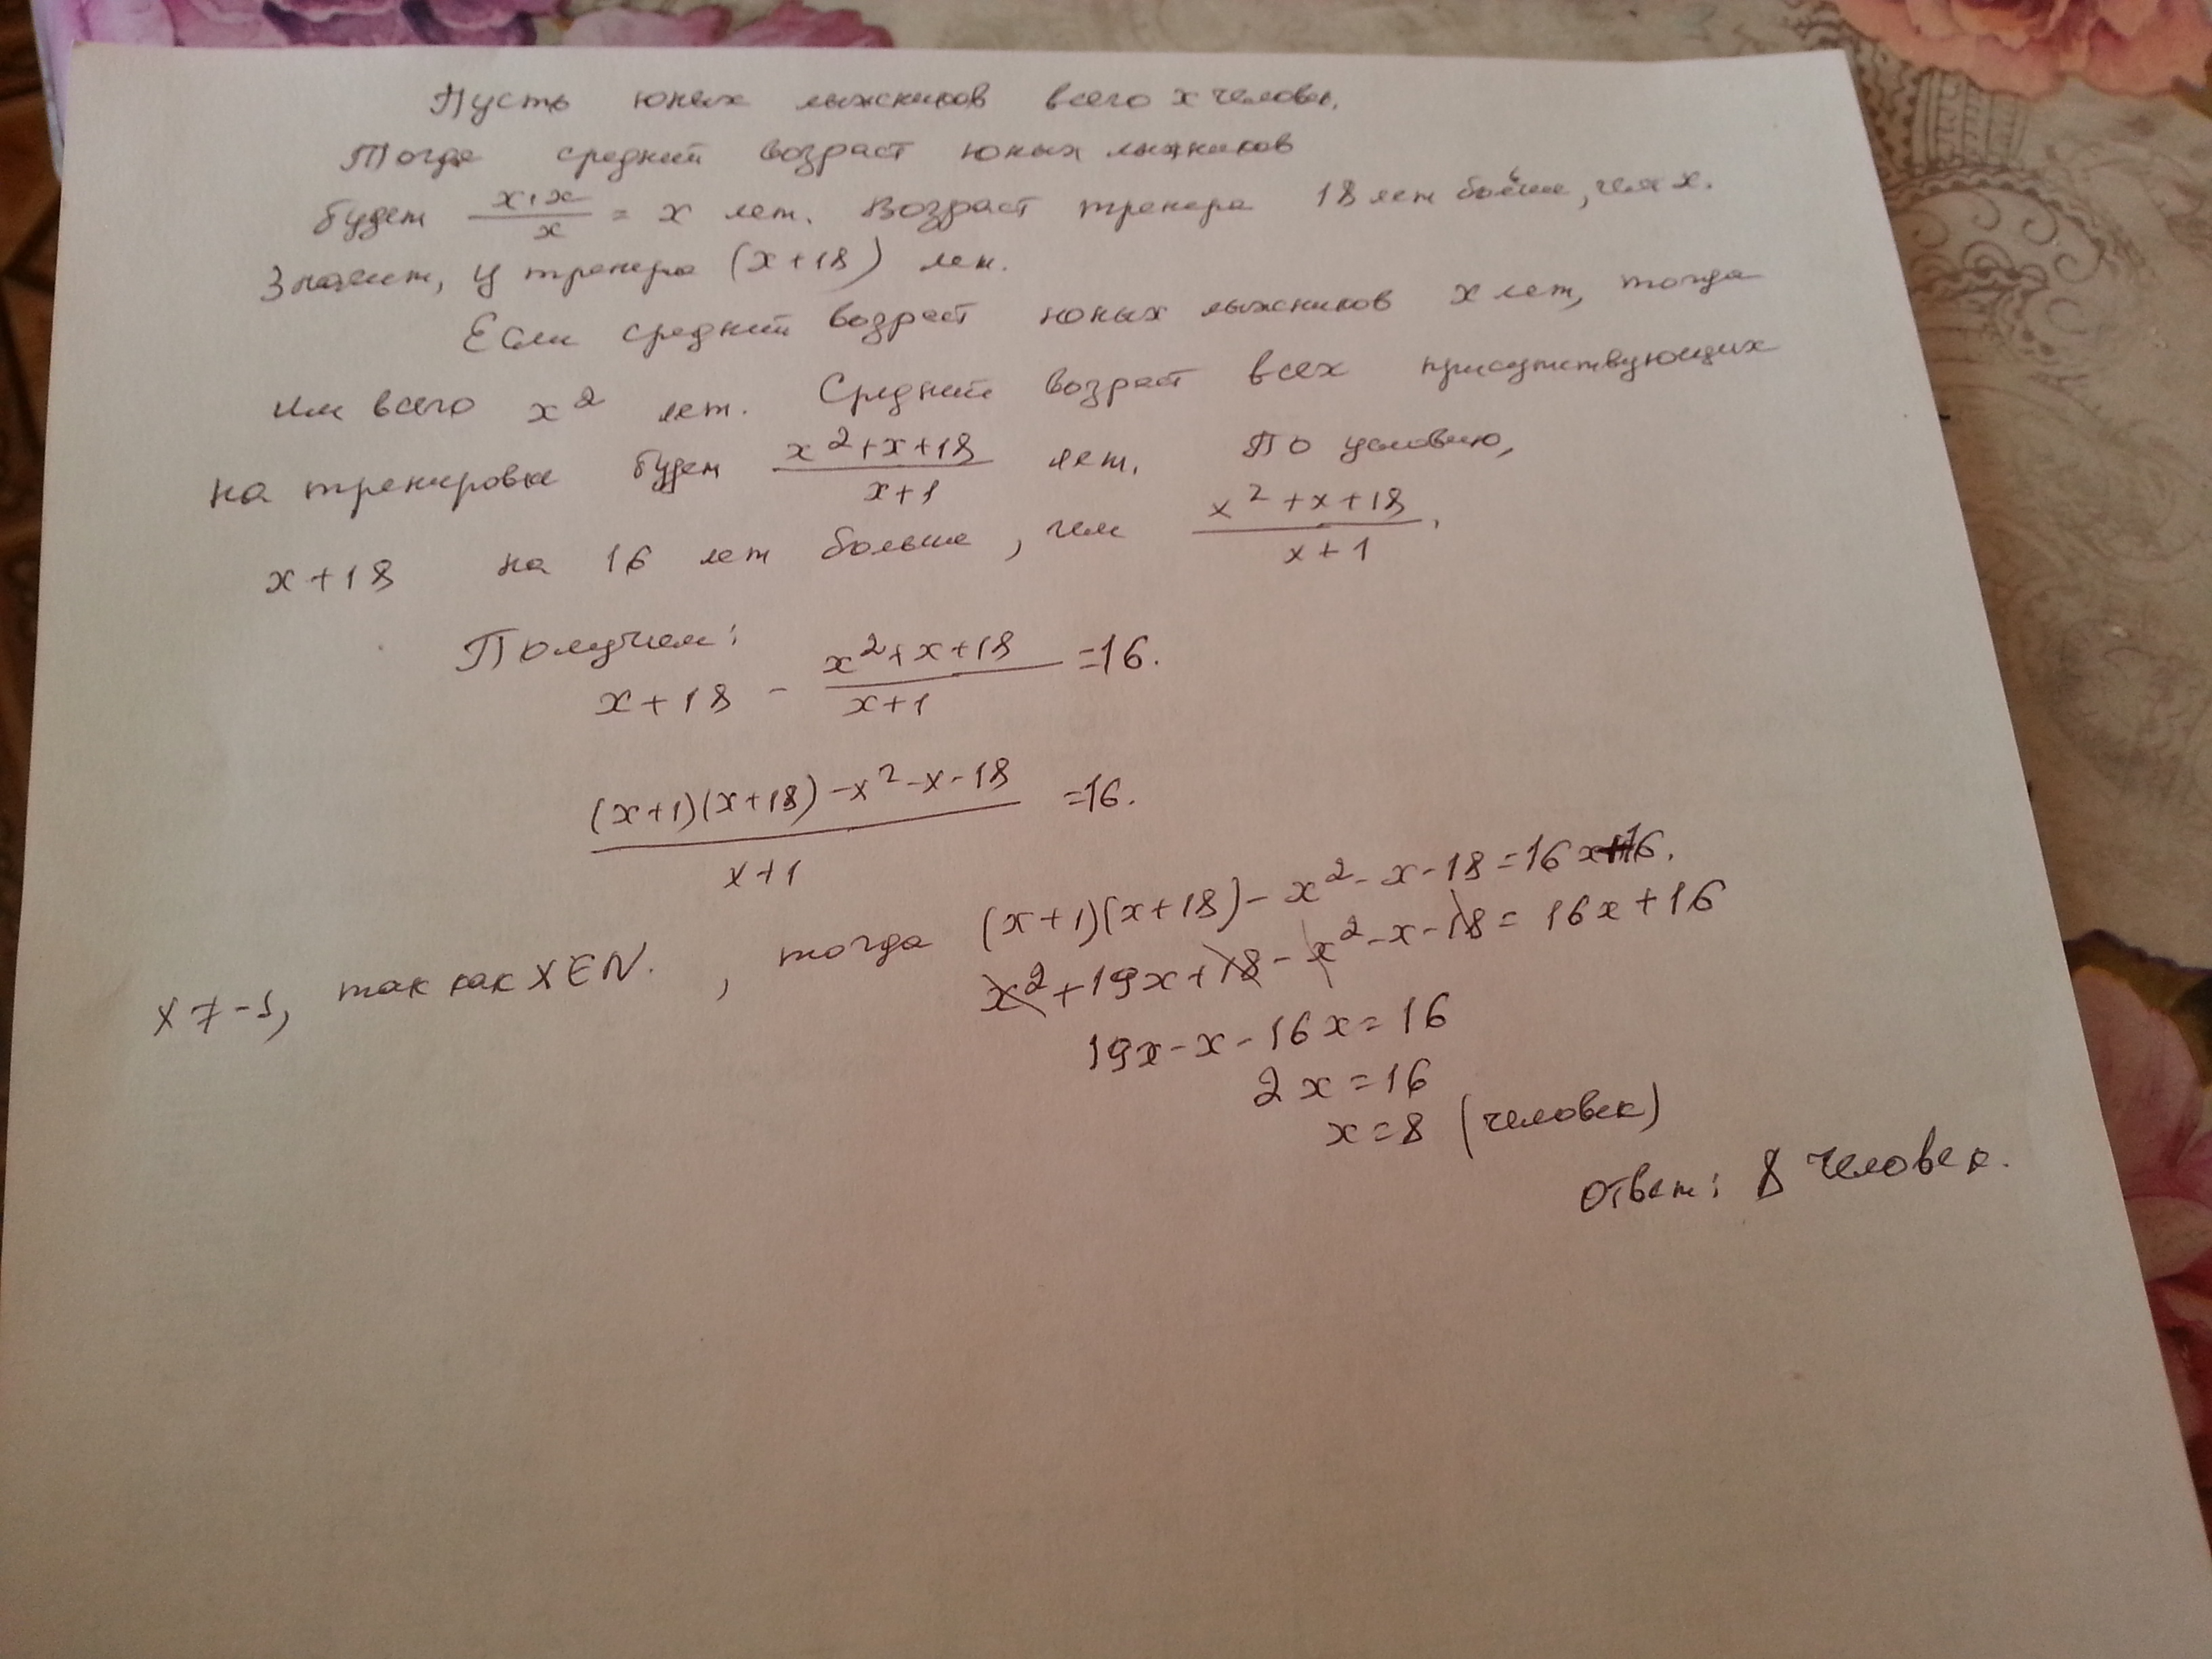 Пусть юных лыжников всего x человек.
Тогда средний возраст юных лыжников
будет x·x/x = x лет. Возраст тренера 18 лет больше, чем x.
Значит, у тренера (x+18) лет.
Если средний возраст юных лыжников x лет, тогда
им всего x² лет. Средний возраст всех присутствующих
на тренировке будет (x²+x+18)/(x+1) лет. По условию,
x+18 на 16 лет больше, чем (x²+x+18)/(x+1).
Получаем:
x+18 - (x²+x+18)/(x+1) =16.
((x+1)(x+18)-x²-x-18)/(x+1) =16.
x≠-1, так как x∈N. , тогда (x+1)(x+18)-x²-x-18=16x+16.
x²+19x+18-x²-x-18=16x+16
19x-x-16x=16
2x=16
x=8 (человек)
Ответ: 8 человек.